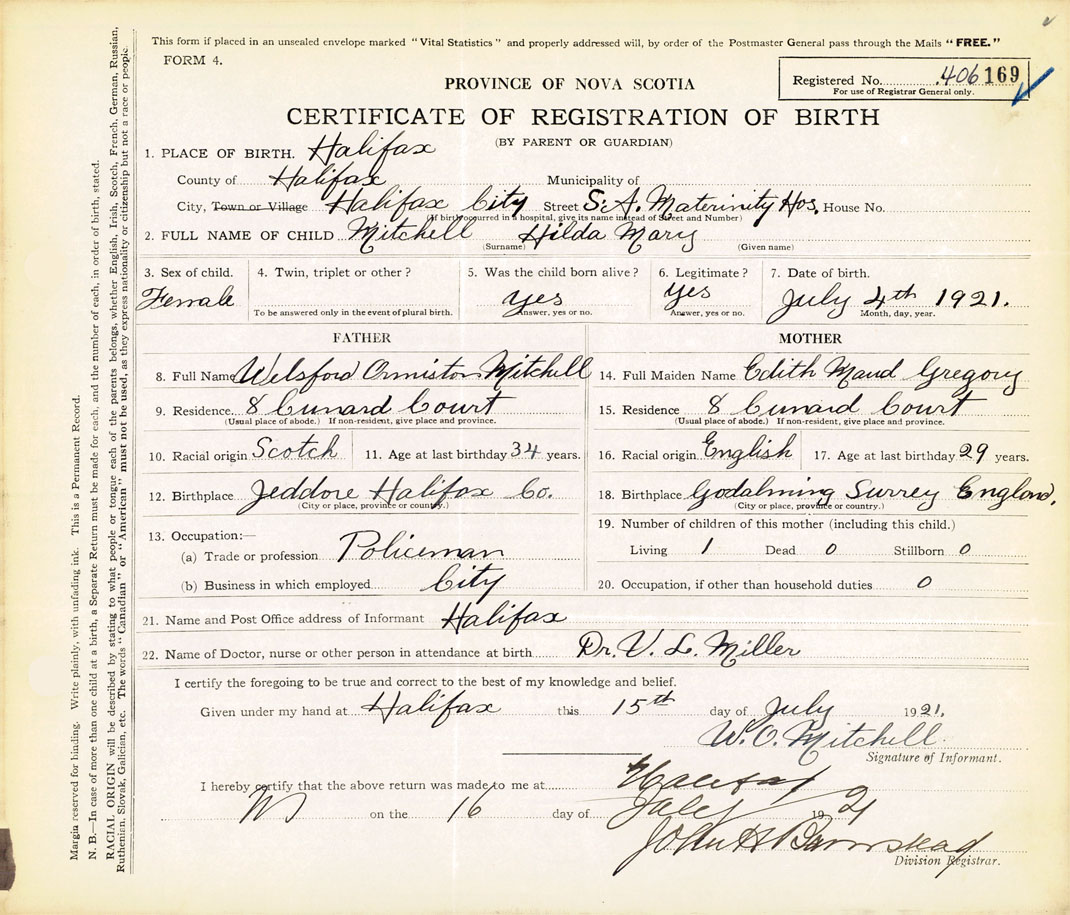 This form if placed in an unsealed envelope marked "Vital Statistics" and properly addressed will, by order of the Postmaster General pass through the Mails "FREE."
FORM 4.
Registered No. 406 169
For use of Registrar General only.
PROVINCE OF NOVA SCOTIA
CERTIFICATE OF REGISTRATION OF BIRTH
(BY PARENT OR GUARDIAN)
1. PLACE OF BIRTH. Halifax
County of Halifax Municipality of
City, Town or Village Halifax City Street S.A. Maternity Hos. House No.
(If birth occurred in a hospital, give its name instead of Street and Number)
2. FULL NAME OF CHILD Mitchell Hilda Mary
(Surname) (Given name)
3. Sex of child. 4. Twin, triplet or other? 5. Was the child born alive? 6. Legitimate? 7. Date of birth.
Female yes yes July 4th 1921.
To be answered only in the event of plural birth. Answer, yes or no. Answer, yes or no. Month, day, year.
FATHER MOTHER
8. Full Name Welsford Ormiston Mitchell 14. Full Maiden Name Edith Maud Gregory
9. Residence. 8 Cunard Court 15. Residence 8 Cunard Court
(Usual place of abode.) If non-resident, give place and province. (Usual place of abode.) If non-resident, give place and province.
10. Racial origin Scotch 11. Age at last birthday 34 years. 16. Racial origin English 17. Age at last birthday 29 years.
12. Birthplace Jeddore Halifax Co. 18. Birthplace Godalming Surrey England.
(City or place, province or country.) (City or place, province or country.)
13. Occupation:— 19. Number of children of this mother (including this child.)
(a) Trade or profession Policeman Living 1 Dead 0 Stillborn 0
(b) Business in which employed City 20. Occupation, if other than household duties 0
21. Name and Post Office address of Informant Halifax
22. Name of Doctor, nurse or other person in attendance at birth Dr. V. L. Miller
I certify the foregoing to be true and correct to the best of my knowledge and belief.
Given under my hand at Halifax this 15th day of July 1921.
W. O. Mitchell.
Signature of Informant.
I hereby certify that the above return was made to me at Halifax
on the 16 day of July 192
John H Barnstead
Division Registrar.
Margin reserved for binding. Write plainly, with unfading ink. This is a Permanent Record.
N. B.—In case of more than one child at a birth, a Separate Return must be made for each, and the number of each, in order of birth, stated.
RACIAL ORIGIN will be described by stating to what people or tongue each of the parents belongs, whether English, Irish, Scotch, French, German, Russian,
Ruthenian, Slovak, Galician, etc. The words "Canadian" or "American" must not be used, as they express nationality or citizenship but not a race or people.